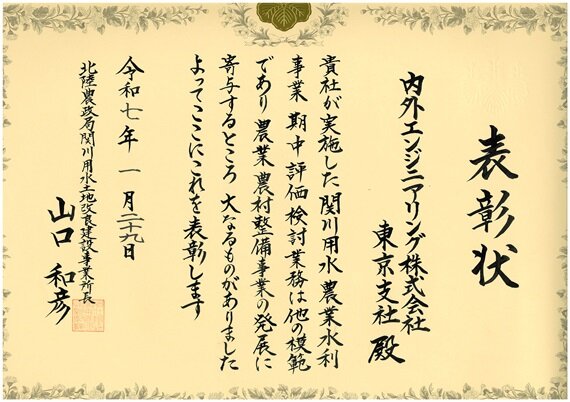 表彰状
内外エンジニアリング株式会社
東京支社 殿
貴社が実施した関川用水農業水利
事業 期中評価検討業務は他の模範
であり 農業農村整備事業の発展に
寄与するところ 大なるものがありました
よってここにこれを表彰します
令和七年 一月二十九日
北陸農政局関川用水土地改良建設事業所長
山口 和彦